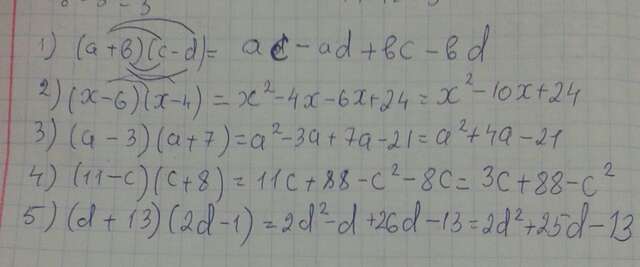 1) (a+b)(c-d)= ac-ad+bc-bd
2) (x-6)(x-4) = x²-4x-6x+24 = x²-10x+24
3) (a-3)(a+7)=a²-3a+7a-21=a²+4a-21
4) (11-c)(c+8) = 11c+88-c²-8c= 3c+88-c²
5) (d+13)(2d-1)=2d²-d+26d-13=2d²+25d-13